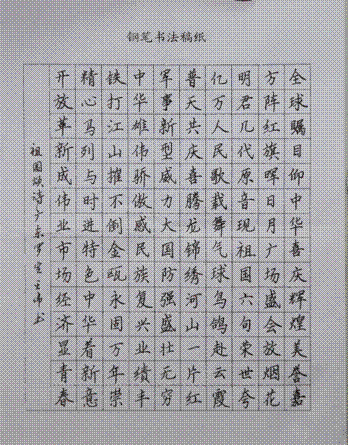 钢笔书法稿纸
全球瞩目仰中华喜庆辉煌美誉嘉
方阵红旗晖日月广场盛会放烟花
明君几代原音现祖国六句荣世夸
亿万人民歌载舞气球鸟鸽赴云霞
普天共庆喜腾龙锦绣河山一片红
军事新型威力大国防强盛壮元穷
中华雄伟骄傲感民族复兴业绩丰
铁打江山摧不倒金瓯永固万年荣
精心马列与时进特色中华着新意
开放革新成伟业市场经济显青春
祖国颂诗广东罗定伟书